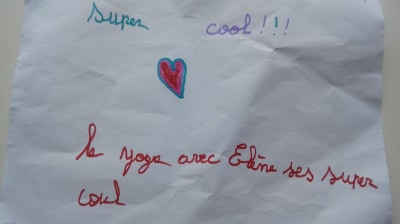 super cool!!!
le yoga avec Elène ses super
cool